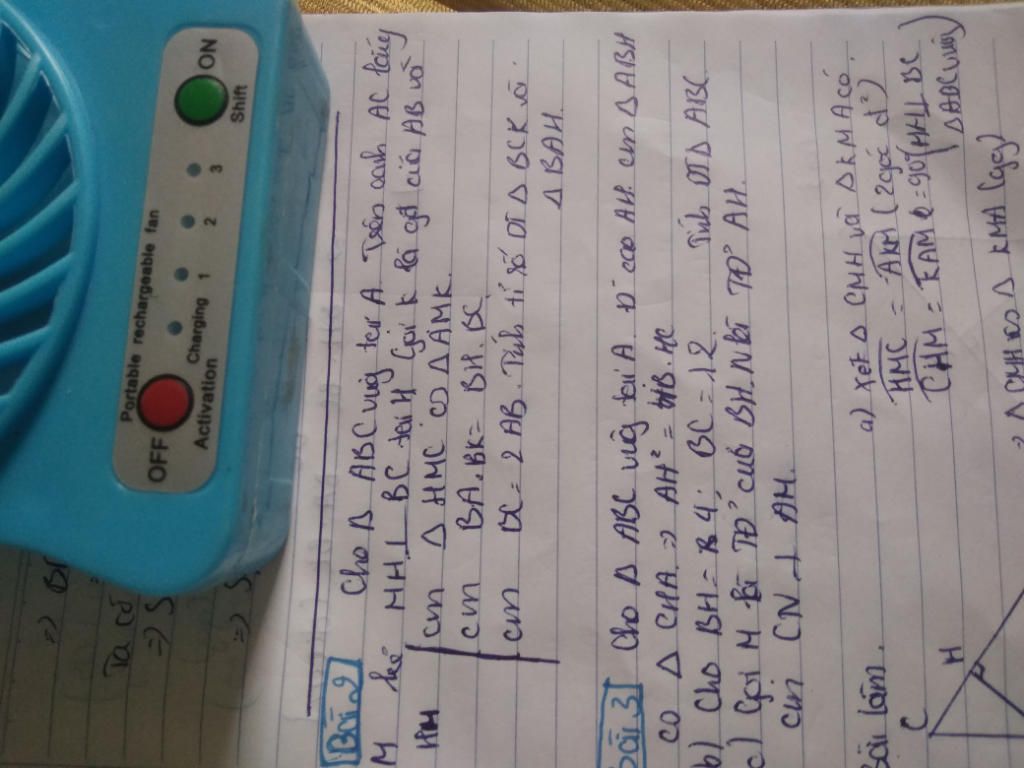 Portable rechargeable fan
OFF
ON
Charging 1 2 3
Activation
Shift
Bài 2
Cho Δ ABC vuông tại A Trên cạnh AC lấy
M kẻ MH ⊥ BC tại H Gọi K là gđ của AB và
HM
cm Δ HMC ∽ Δ AMK.
cm BA.BK = BH.BC
cm BC = 2 AB. Tính tỉ số DT Δ BCK và
Δ BAH.
Bài 3
Cho Δ ABC vuông tại A. Đ cao AH. cm Δ ABH
∽ Δ CHA. ⇒ AH² = HB.HC
b) Cho BH = 4. BC = 12. Tính DT Δ ABC
c) Gọi M là TĐ của BH. N là TĐ AH.
cm CN ⊥ AH.
Bài làm.
a) Xét Δ CMH và Δ KMA có.
HMC = AKM (2 góc đ²)
CHM = KAM = 90° (MH ⊥ BC
Δ ABC vuông)
⇒ Δ CMH ∽ Δ KMA (gg)
C
H
⇒
Ta có
⇒ S
⇒ S